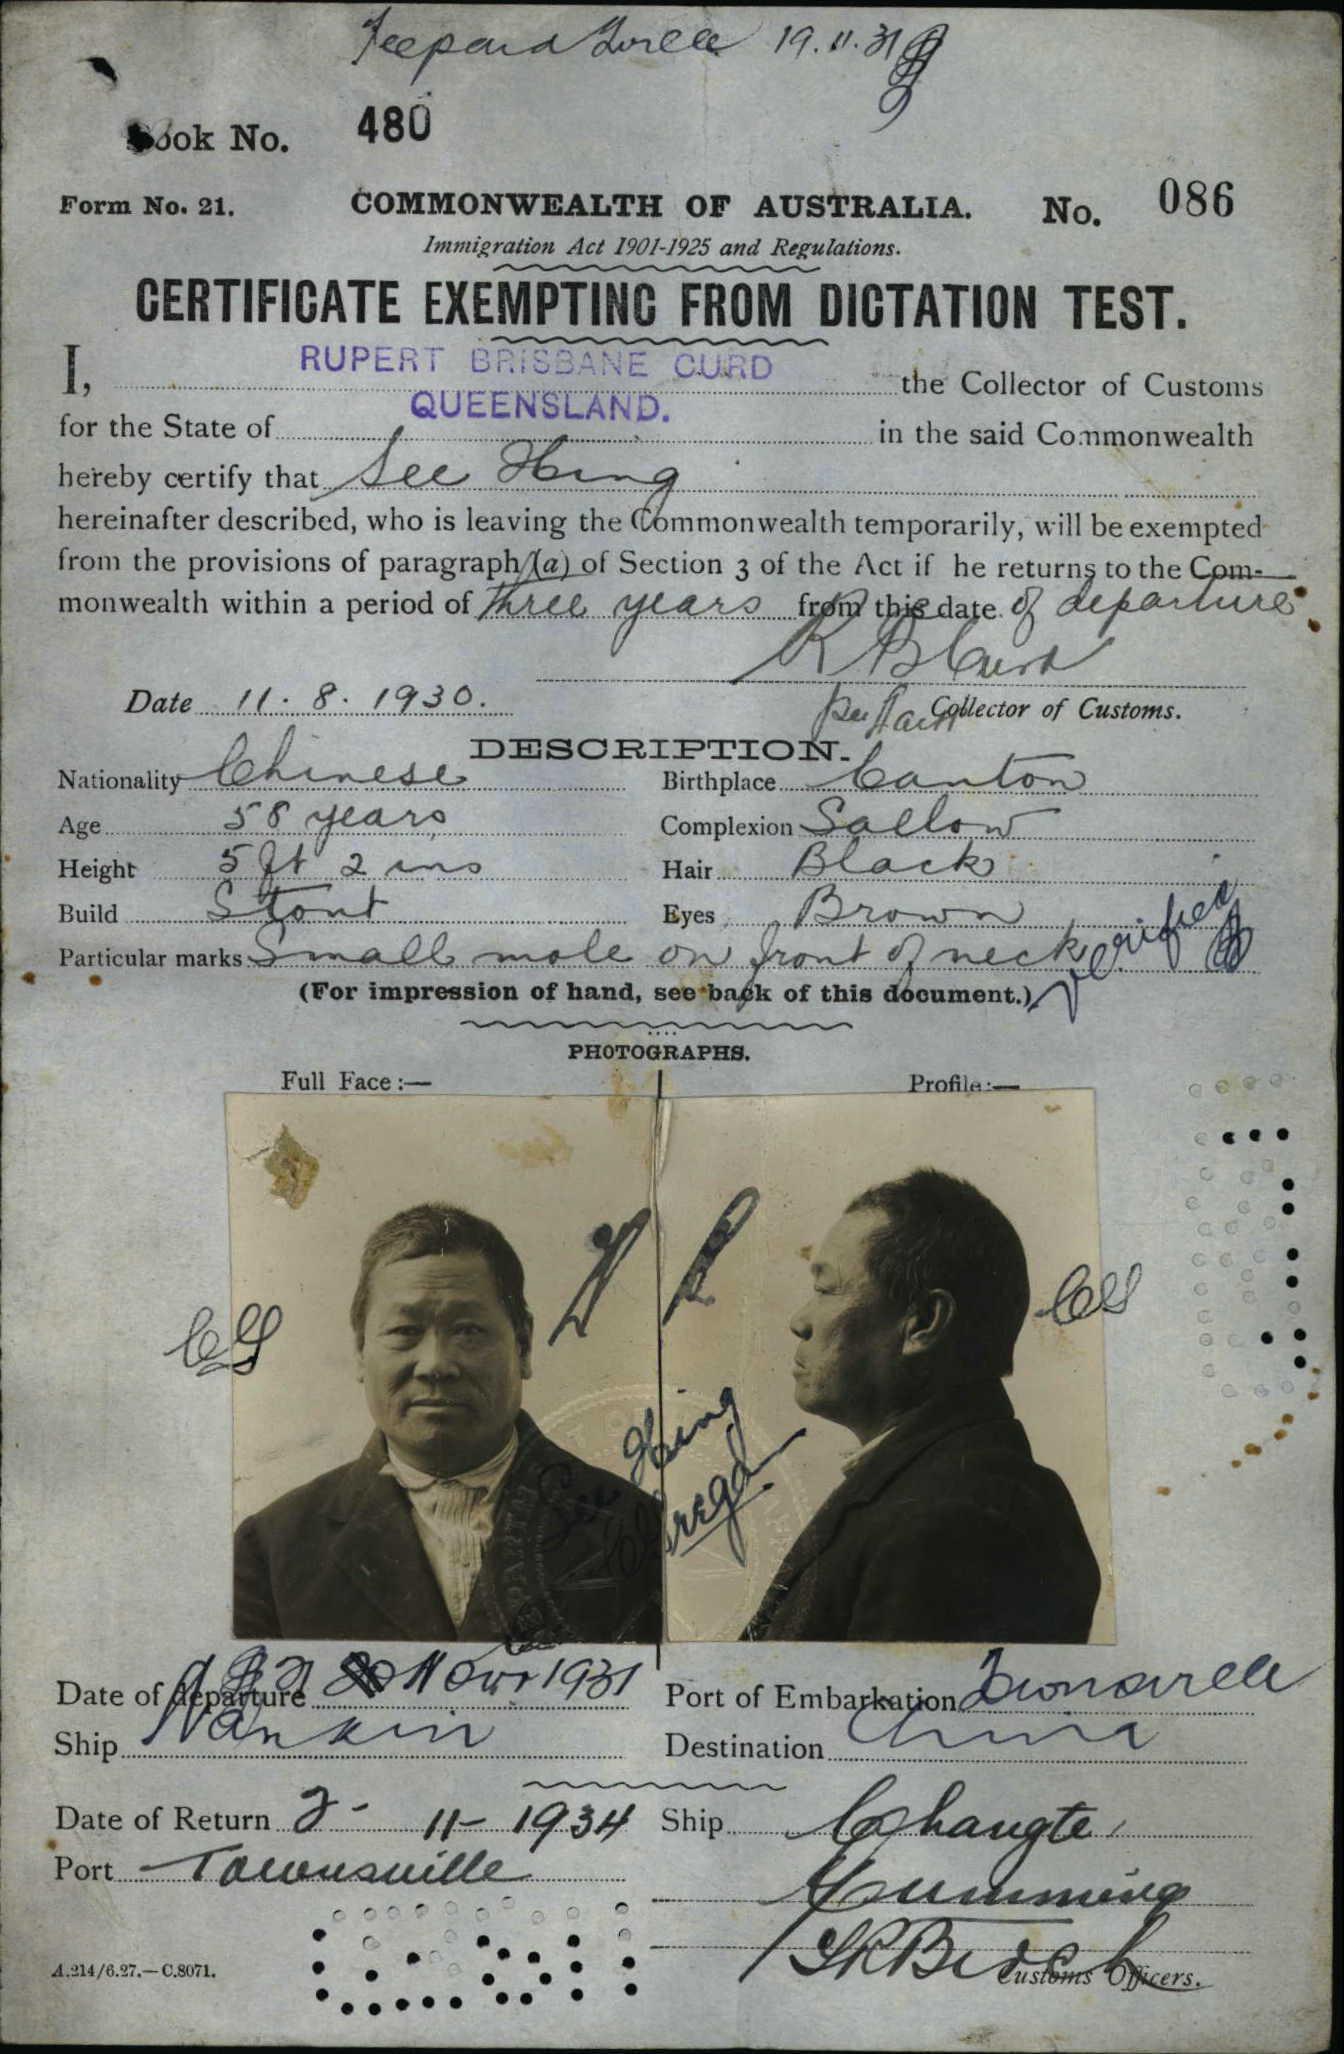 19.11.31
Book No. 480
Form No. 21. COMMONWEALTH OF AUSTRALIA. No. 086
Immigration Act 1901-1925 and Regulations.
CERTIFICATE EXEMPTING FROM DICTATION TEST.
I, RUPERT BRISBANE CURD the Collector of Customs
for the State of QUEENSLAND. in the said Commonwealth
hereby certify that See Hing
hereinafter described, who is leaving the Commonwealth temporarily, will be exempted
from the provisions of paragraph (a) of Section 3 of the Act if he returns to the Com-
monwealth within a period of three years from this date of departure
R B Curd
Date 11. 8. 1930. Collector of Customs.
DESCRIPTION.
Nationality Chinese Birthplace Canton
Age 58 years Complexion Sallow
Height 5 ft 2 ins Hair Black
Build Stout Eyes Brown
Particular marks Small mole on front of neck verified
(For impression of hand, see back of this document.)
PHOTOGRAPHS.
Full Face :— Profile :—
See Hing
Date of departure Novr 1931 Port of Embarkation Townsville
Ship Nankin Destination China
Date of Return 2- 11- 1934 Ship Changte
Port Townsville Cumming
Customs Officers.
A.214/6.27.—C.8071.